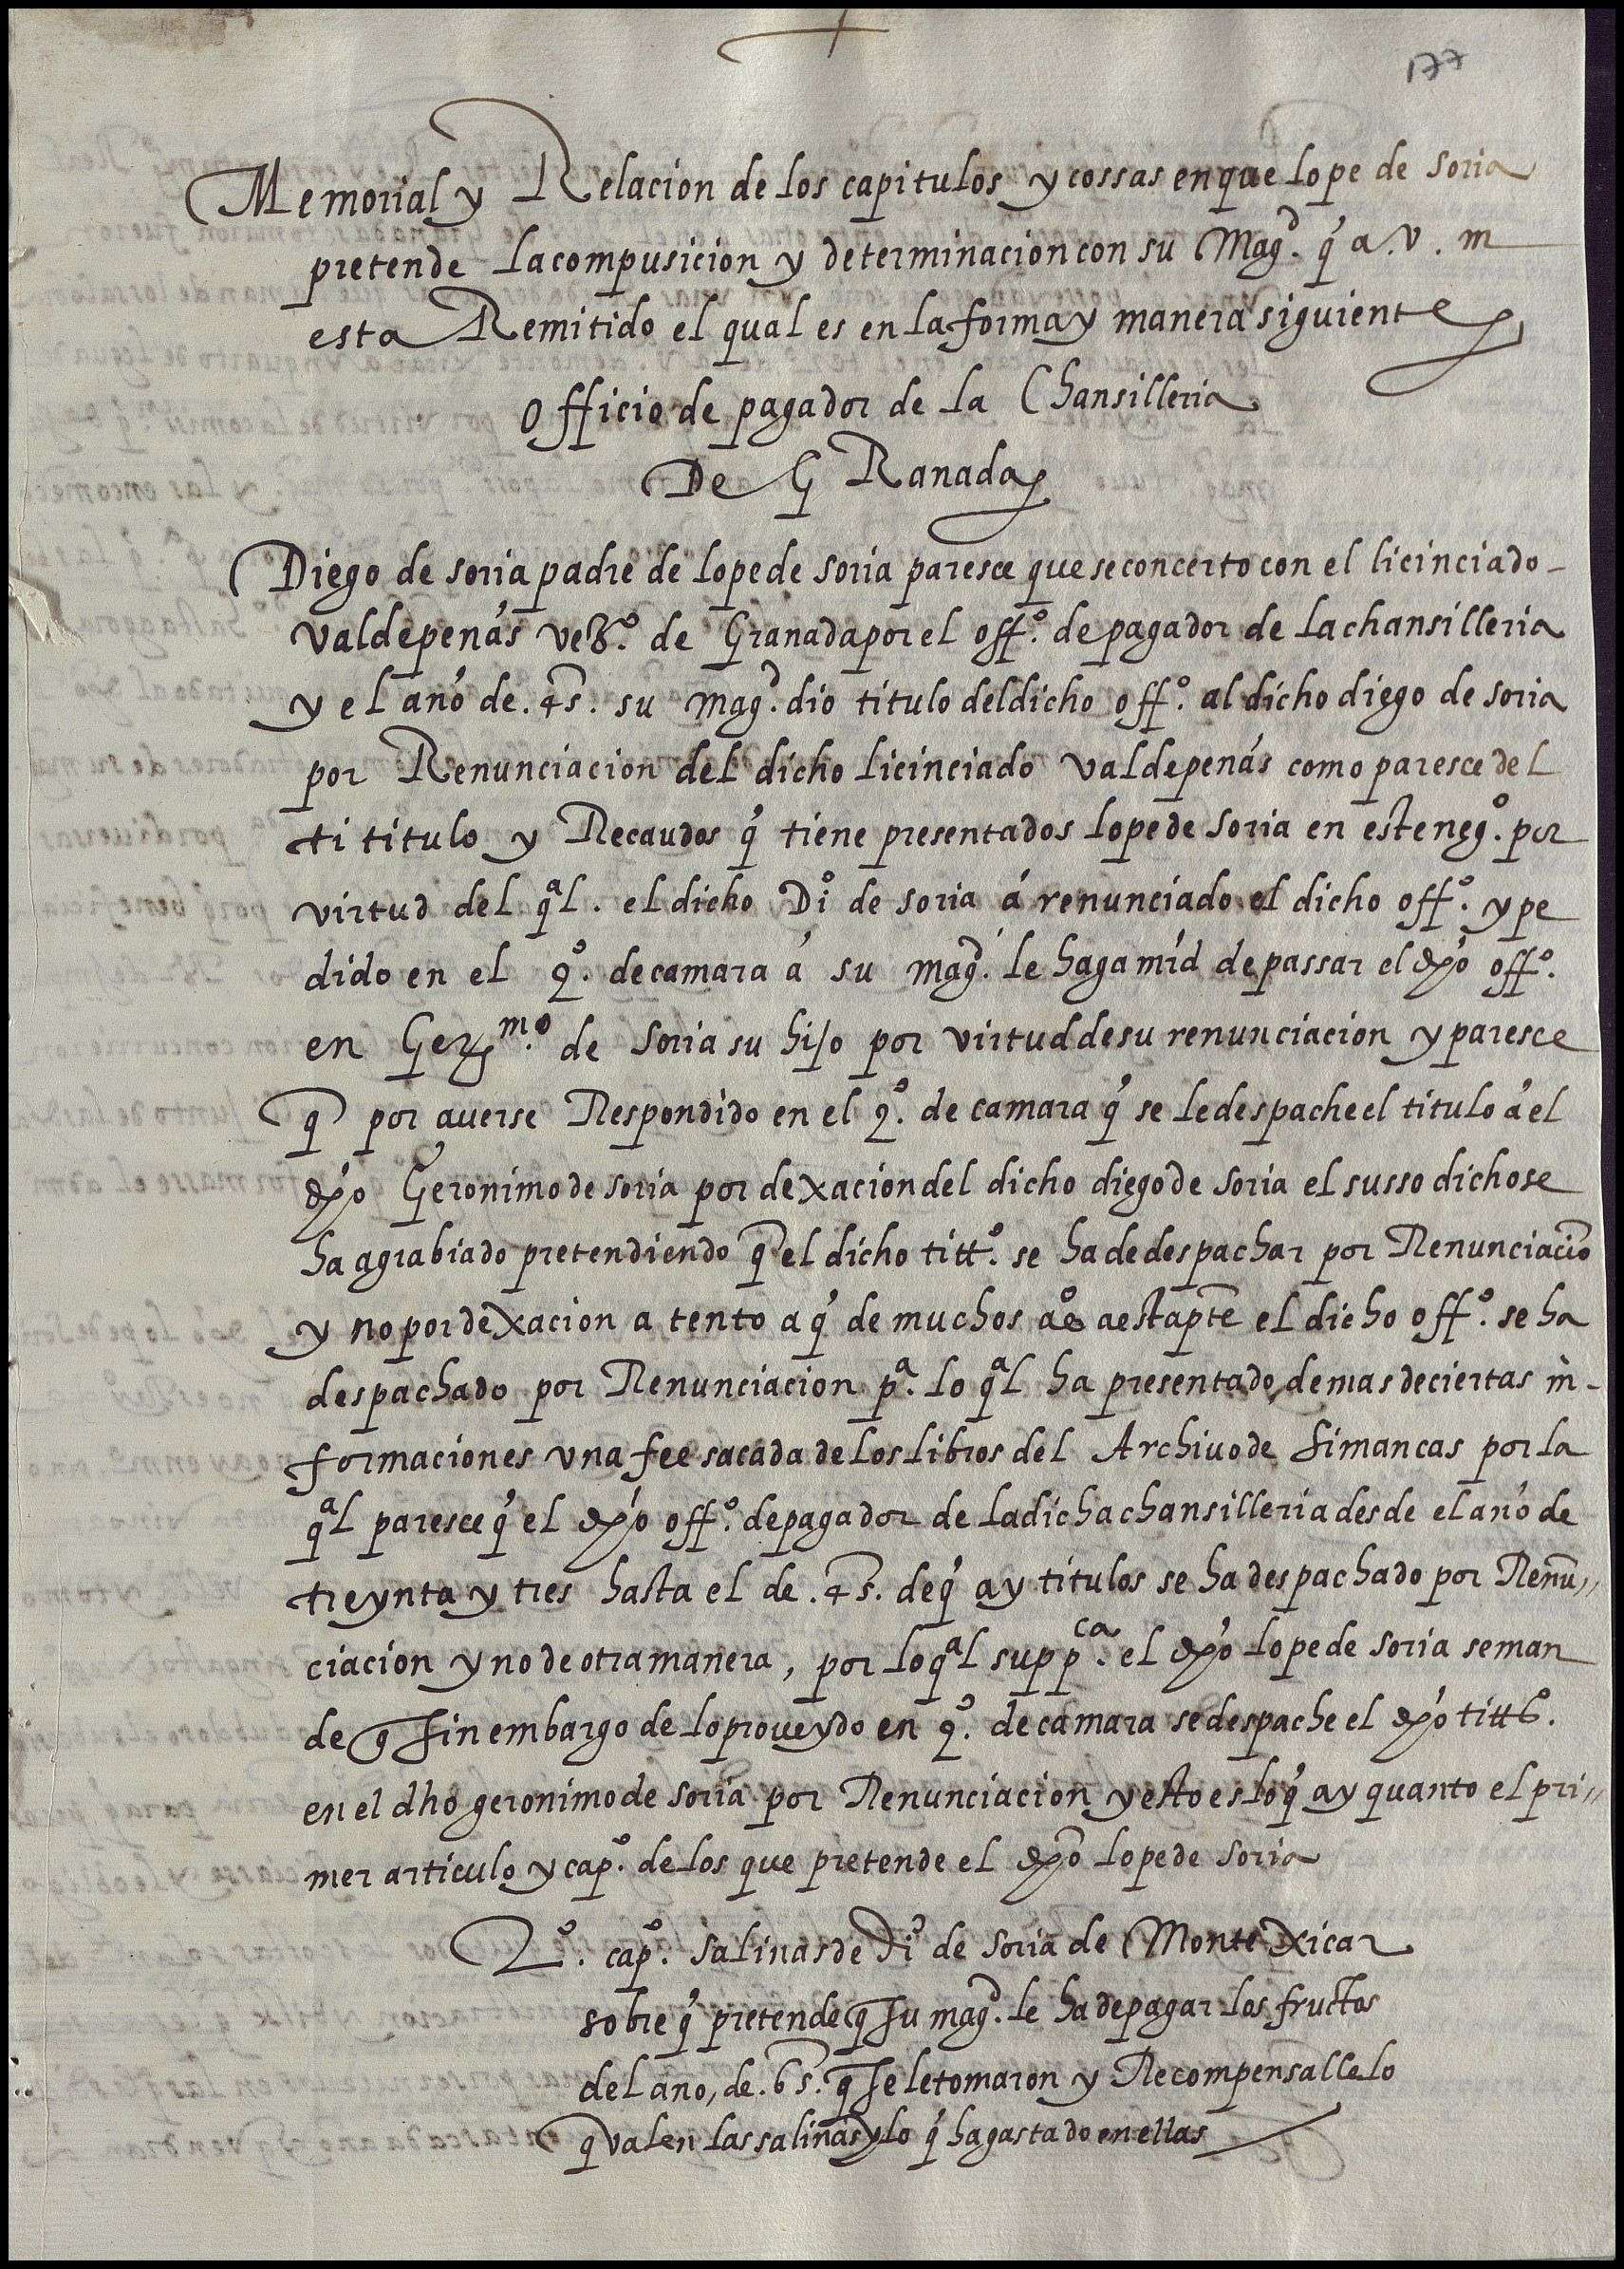 177
Memorial y Relacion de los capitulos y cossas en que lope de soria
pretende la compusicion y determinacion con su Magd. q̓ a. v. m
esta Remitido el qual es en la forma y manera siguiente
officio de pagador de la Chansilleria
De GRanada
Diego de soria padre de lope de soria paresce que se concerto con el licinciado -
valdepenás vezº. de Granada por el offº. de pagador de la chansilleria
y el anó de .45. su magd. dio titulo del dicho offº. al dicho diego de soria
por Renunciacion del dicho licinciado valdepenás como paresce del
ti titulo y Recaudos q̓ tiene presentados lope de soria en este negº. por
virtud del qªl. el dicho Diº de soria á renunciado el dicho offº. y pe
dido en el qº. de camara á su magd. le haga mŕd de passar el dẖo offº.
en Gerᵐº. de soria su hijo por virtud de su renunciacion y paresce
q̄ por auerse Respondido en el qº. de camara q̓ se le despache el titulo á el
dẖo Geronimo de soria por dexacion del dicho diego de soria el susso dicho se
ha agrabiado pretendiendo q̄ el dicho tittº. se ha de despachar por Renunciacio͞
y no por dexacion a tento a q̓ de muchos aºs a esta pt͞e el dicho offº. se ha
despachado por Renunciacion pª. lo qªl ha presentado, demas de ciertas in-
formaciones vna fee sacada de los libros del Archiuo de simancas por la
qªl paresce q̓ el dẖo offº. de pagador de la dicha chansilleria desde el anó de
treynta y tres hasta el de .45. de q̓ ay titulos se ha despachado por Renu͞,,
ciacion y no de otra manera, por lo qªl suppᶜᵃ. el dẖo lope de soria se man
de q̄ sin embargo de lo proueydo en qº. de camara se despache el dẖo tittº.
en el dho geronimo de soria por Renunciacion y esto es lo q̓ ay quanto el pri,,
mer articulo y capº. de los que pretende el dẖo lope de soria
2º. capº. salinas de Diº de soria de Montexicar
sobre q̓ pretende q̄ su magd. le ha de pagar los fructos
del ano, de .65. q̄ se le tomaron y Recompensalle lo
q̄ valen las salinas y lo q̓ ha gastado en ellas